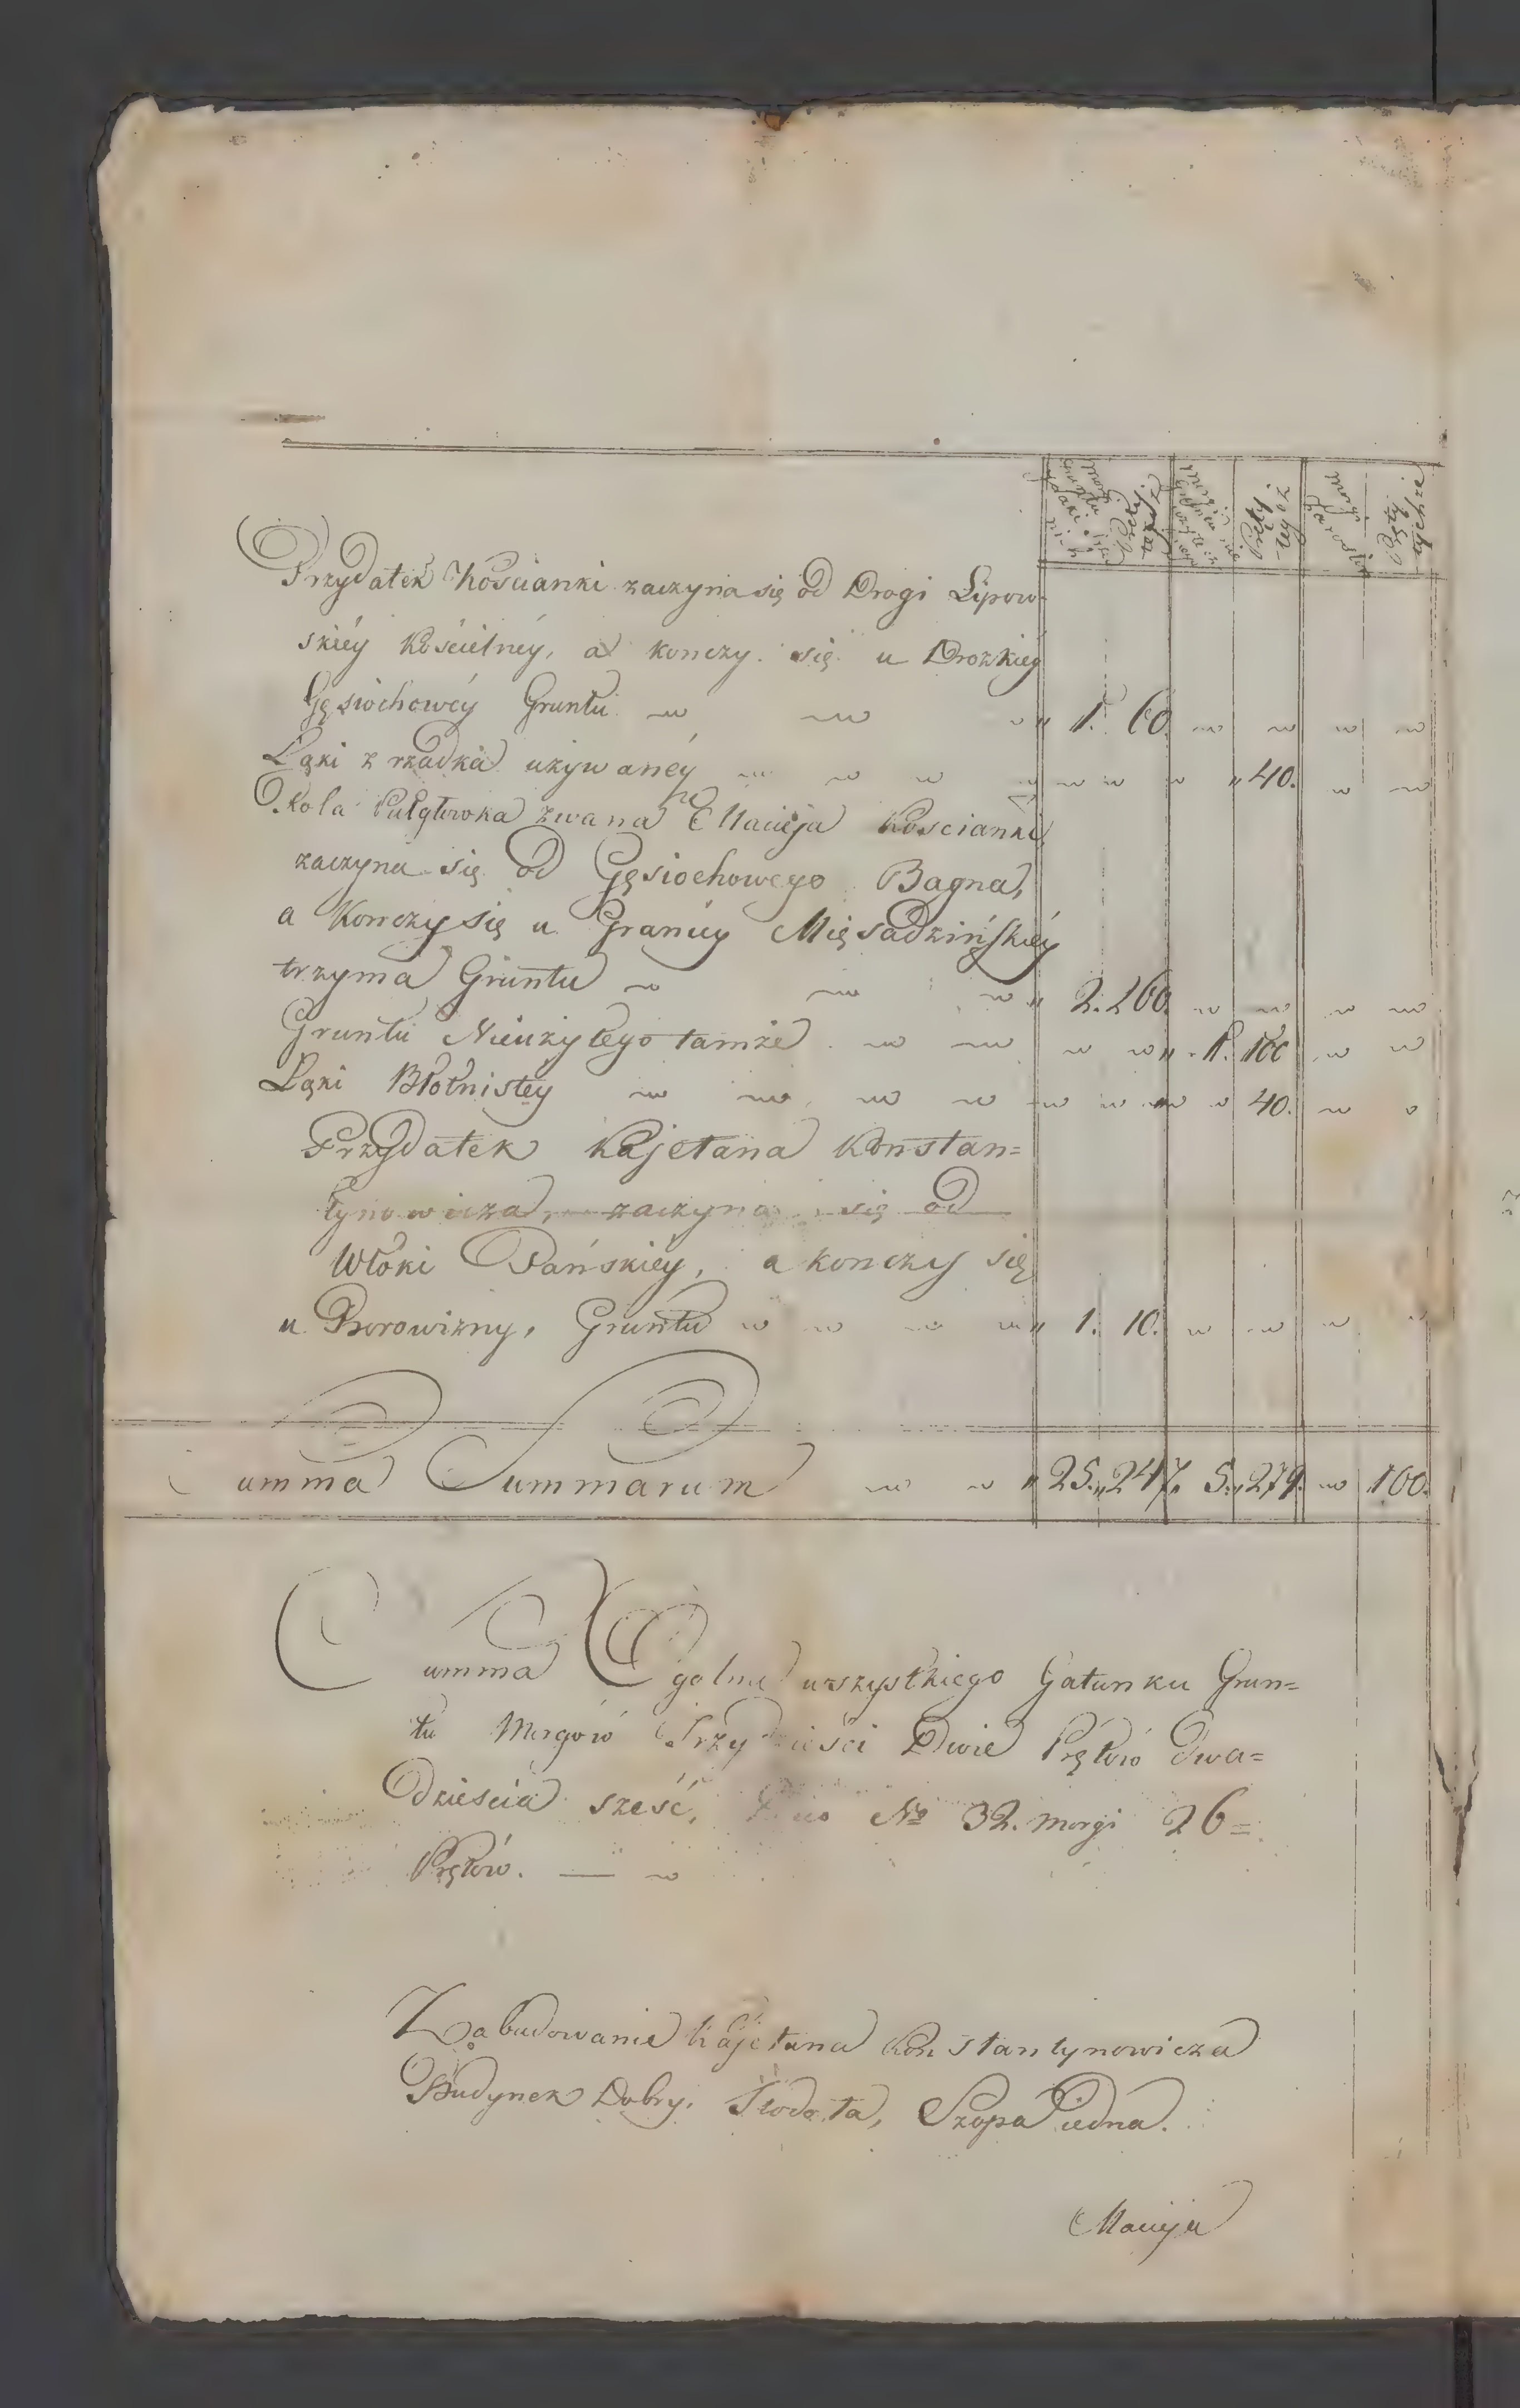 Pręty tegoż
Morgi Zarosłów
Pręty tychże
Przydatek Kościanki zaczyna się od Drogi Lipow-
skiéy Kościelnéy, a konczy się u Drozkiey
Gęsiochowéy Gruntu 1. 60.
Łąki z rzadka używanéy 40.
Rola Pułątowka zwana Macieja Koscianki
zaczyna się od Gęsiochowego Bagna,
a Konczy się u Granicy Mięsadzińskiéy
trzyma Gruntu 2. 260.
Gruntu Nieużytego tamże 1. 100
Łąki Błotnistey 40.
Przydatek Kajetana Konstan=
tynowicza, zaczyna się od
Włoki Pańskiéy, a konczy się
u Borowizny, Gruntu 1. 10.
Summa Summarum 25. 247. 5. 279. 100.
Summa Ogolna wszystkiego Gatunku Grun=
tu Morgów Trzydzieści Dwie Prętów Dwa=
Dzieścia sześć, No 32. morgi 26=
Prętów.
Zabudowanie Kajetana Konstantynowicza
Budynek Dobry, Stodoła, Szopa iedna.
Macieja